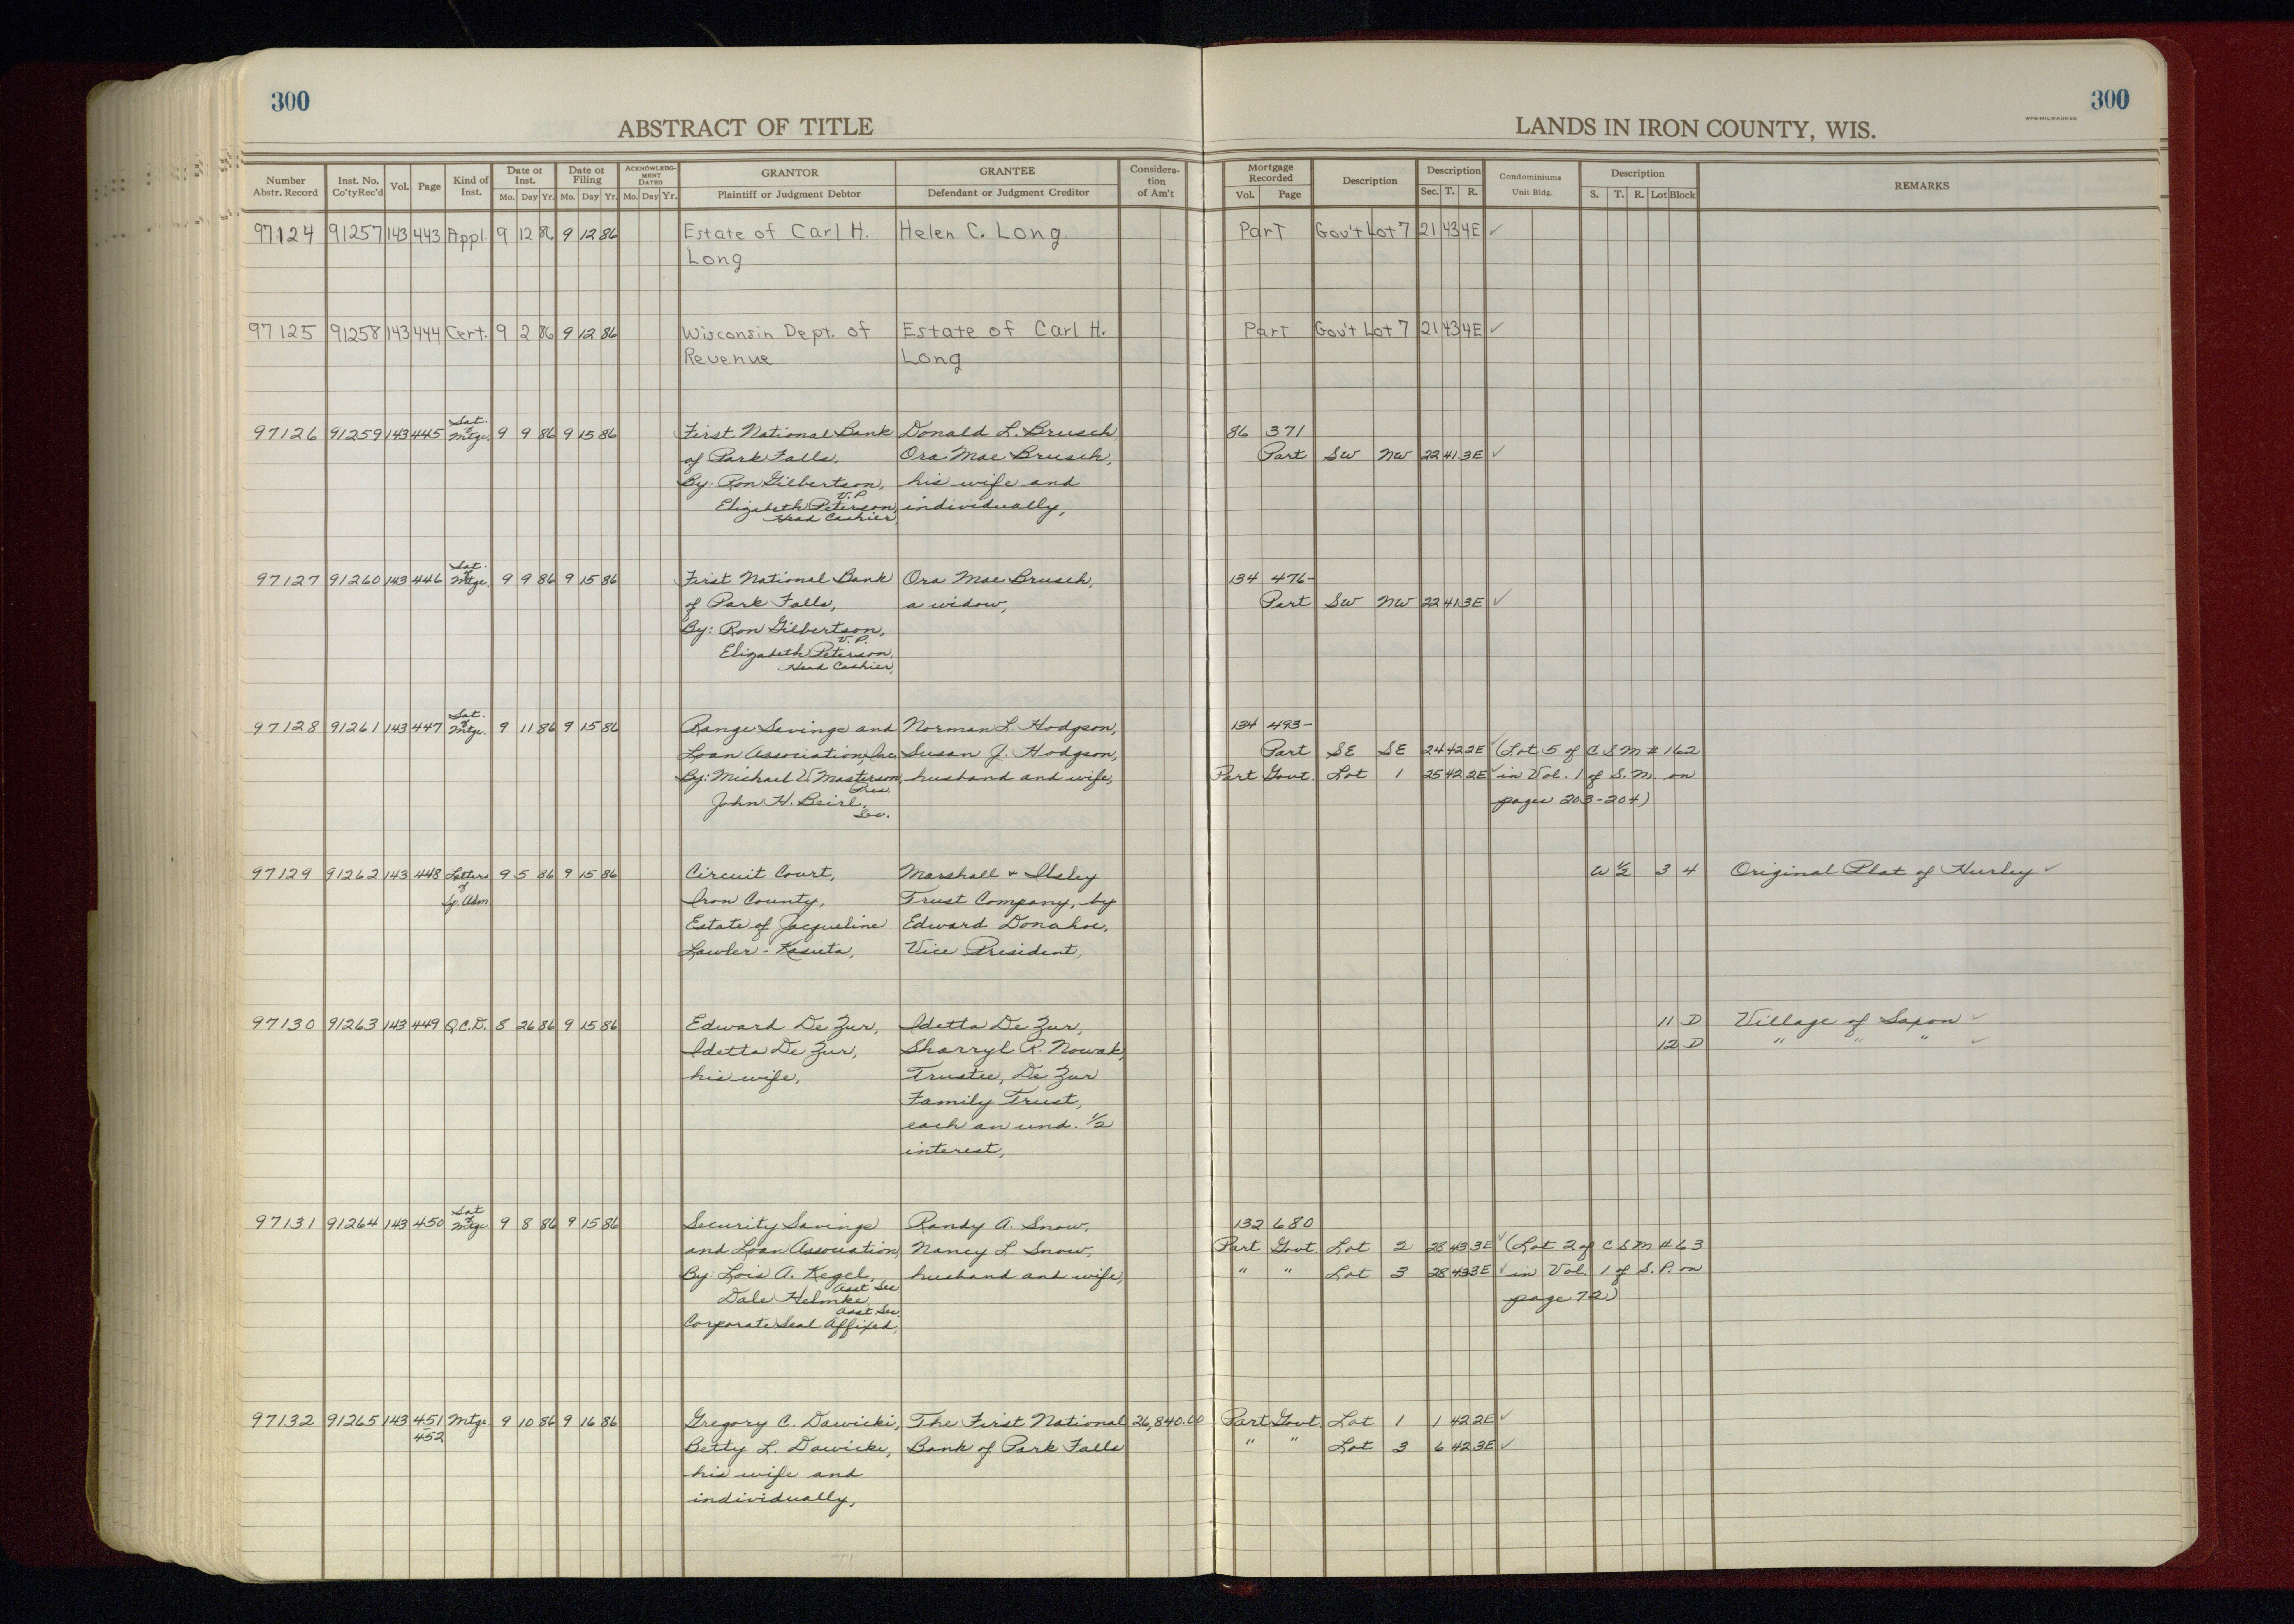 300
300
ABSTRACT OF TITLE
LANDS IN IRON COUNTY, WIS.
WPB-MILWAUKEE
Number Abstr. Record | Inst. No. Co'ty Rec'd | Vol. | Page | Kind of Inst. | Date of Inst. Mo. Day Yr. | Date of Filing Mo. Day Yr. | ACKNOWLEDGMENT DATED Mo. Day Yr. | GRANTOR Plaintiff or Judgment Debtor | GRANTEE Defendant or Judgment Creditor | Consideration of Am't | Mortgage Recorded Vol. Page | Description | Description Sec. T. R. | Condominiums Unit Bldg. | Description S. T. R. Lot Block | REMARKS
97124 91257 143 443 Appl. 9 12 86 9 12 86 Estate of Carl H. Helen C. Long Part Gov't Lot 7 21 43 4E ✓
Long
97125 91258 143 444 Cert. 9 2 86 9 12 86 Wisconsin Dept. of Estate of Carl H. Part Gov't Lot 7 21 43 4E ✓
Revenue Long
97126 91259 143 445 Sat. of Mtge. 9 9 86 9 15 86 First National Bank Donald L. Brusch, 86 371
of Park Falls, Ora Mae Brusch, Part SW NW 22 41 3E ✓
By: Ron Gilbertson, V.P. his wife and
Elizabeth Peterson, individually,
Head Cashier,
97127 91260 143 446 Sat. of Mtge. 9 9 86 9 15 86 First National Bank Ora Mae Brusch, 134 476-
of Park Falls, a widow, Part SW NW 22 41 3E ✓
By: Ron Gilbertson, V.P.
Elizabeth Peterson,
Head Cashier,
97128 91261 143 447 Sat. of Mtge. 9 11 86 9 15 86 Range Savings and Norman L. Hodgson, 134 493-
Loan Association, Inc Susan J. Hodgson, Part SE SE 24 42 2E ✓ (Lot 5 of C S M # 162
By: Michael W Masterson, Pres. husband and wife, Part Govt. Lot 1 25 42 2E ✓ in Vol. 1 of S.M. on
John H. Beirl, Sec. pages 203-204)
97129 91262 143 448 Letters of Sp. Adm 9 5 86 9 15 86 Circuit Court, Marshall + Ilsley W ½ 3 4 Original Plat of Hurley ✓
Iron County, Trust Company, by
Estate of Jacqueline Edward Donahoe,
Lawler - Kasuta, Vice President,
97130 91263 143 449 Q.C.D. 8 26 86 9 15 86 Edward De Zur, Idetta De Zur, 11 D Village of Saxon ✓
Idetta De Zur, Sharryl R. Nowak, 12 D " " " ✓
his wife, Trustee, De Zur
Family Trust,
each an und. 1/2
interest,
97131 91264 143 450 Sat of Mtge 9 8 86 9 15 86 Security Savings Randy A. Snow, 132 680
and Loan Association, Nancy L. Snow, Part Govt. Lot 2 28 43 3E ✓ (Lot 2 of C S M # 63
By: Lois A. Kegel, Asst Sec husband and wife, " " Lot 3 28 43 3E ✓ in Vol. 1 of S.P. on
Dale Helmke, Asst Sec. page 72)
Corporate Seal Affixed,
97132 91265 143 451 Mtge 9 10 86 9 16 86 Gregory C. Dawicki, The First National 26,840.00 Part Govt. Lot 1 1 42 2E ✓
452 Betty L. Dawicki, Bank of Park Falls " " Lot 3 6 42 3E ✓
his wife and
individually,